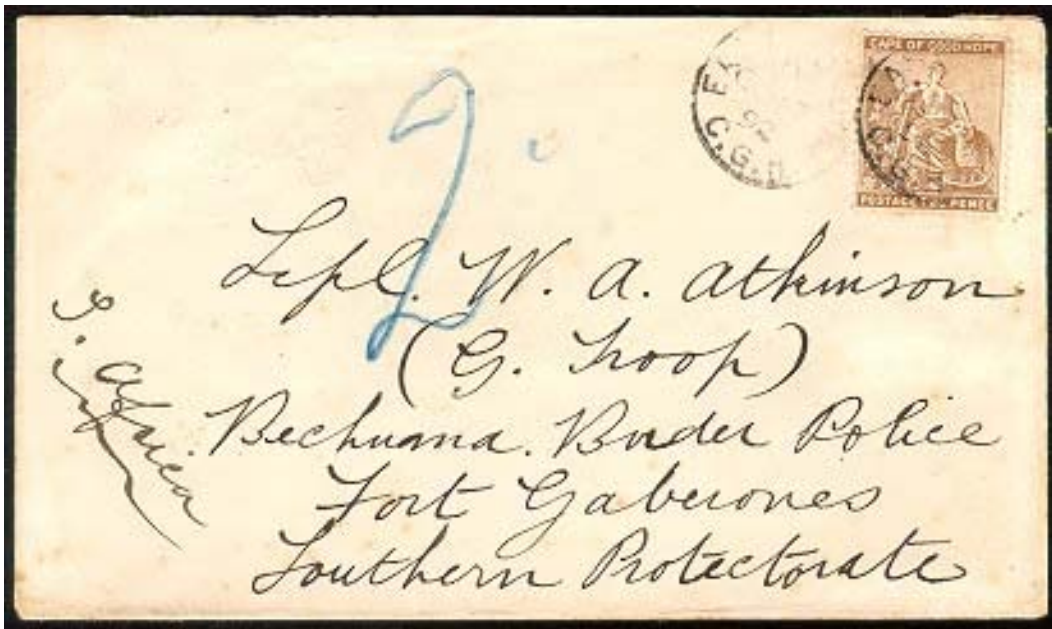 CAPE OF GOOD HOPE
POSTAGE TWO PENCE
92
C.G.H.
2
Lcpl. W. A. Atkinson
(G. Troop)
Bechuana. Border Police
Fort Gaberones
Southern Protectorate
S. Africa